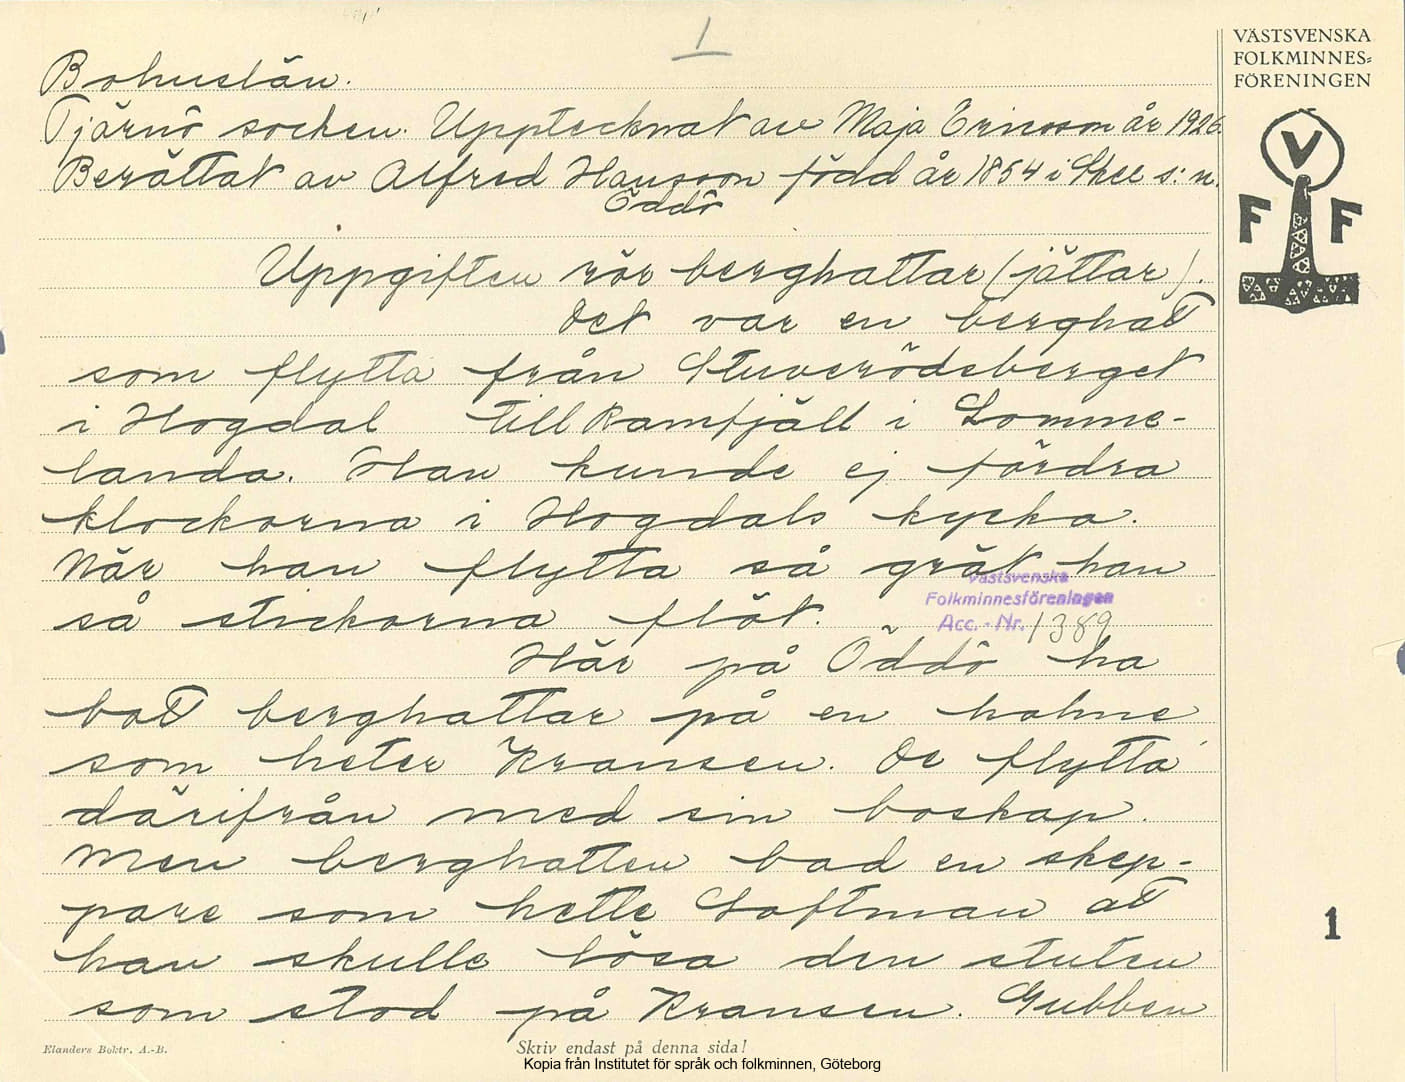 1
VÄSTSVENSKA
FOLKMINNES-
FÖRENINGEN
V
F F
Bohuslän.
Tjärnö socken. Upptecknat av Maja Ericsson år 1926.
Berättat av Alfred Hansson född år 1854 i Skee s:n.
Öddö
Uppgiften rör berghattar (jättar).
Det var en berghatt
som flytta från Stuverödeberget
i Hogdal till Ramfjäll i Lomme-
landa. Han kunde ej fördra
klockorna i Hogdals kyrka.
När han flytta så grät han
så stickorna flöt.
Västsvenska
Folkminnesföreningen
Acc. - Nr. 1389
Här på Öddö ha
bott berghattar på en holme
som heter Kransen. De flytta
därifrån med sin boskap.
Men berghatten bad en skep-
pare som hette Loftman att
han skulle lösa den stuten
som stod på Kransen. Gubben
1
Elanders Boktr. A.-B.
Skriv endast på denna sida!
Kopia från Institutet för språk och folkminnen, Göteborg